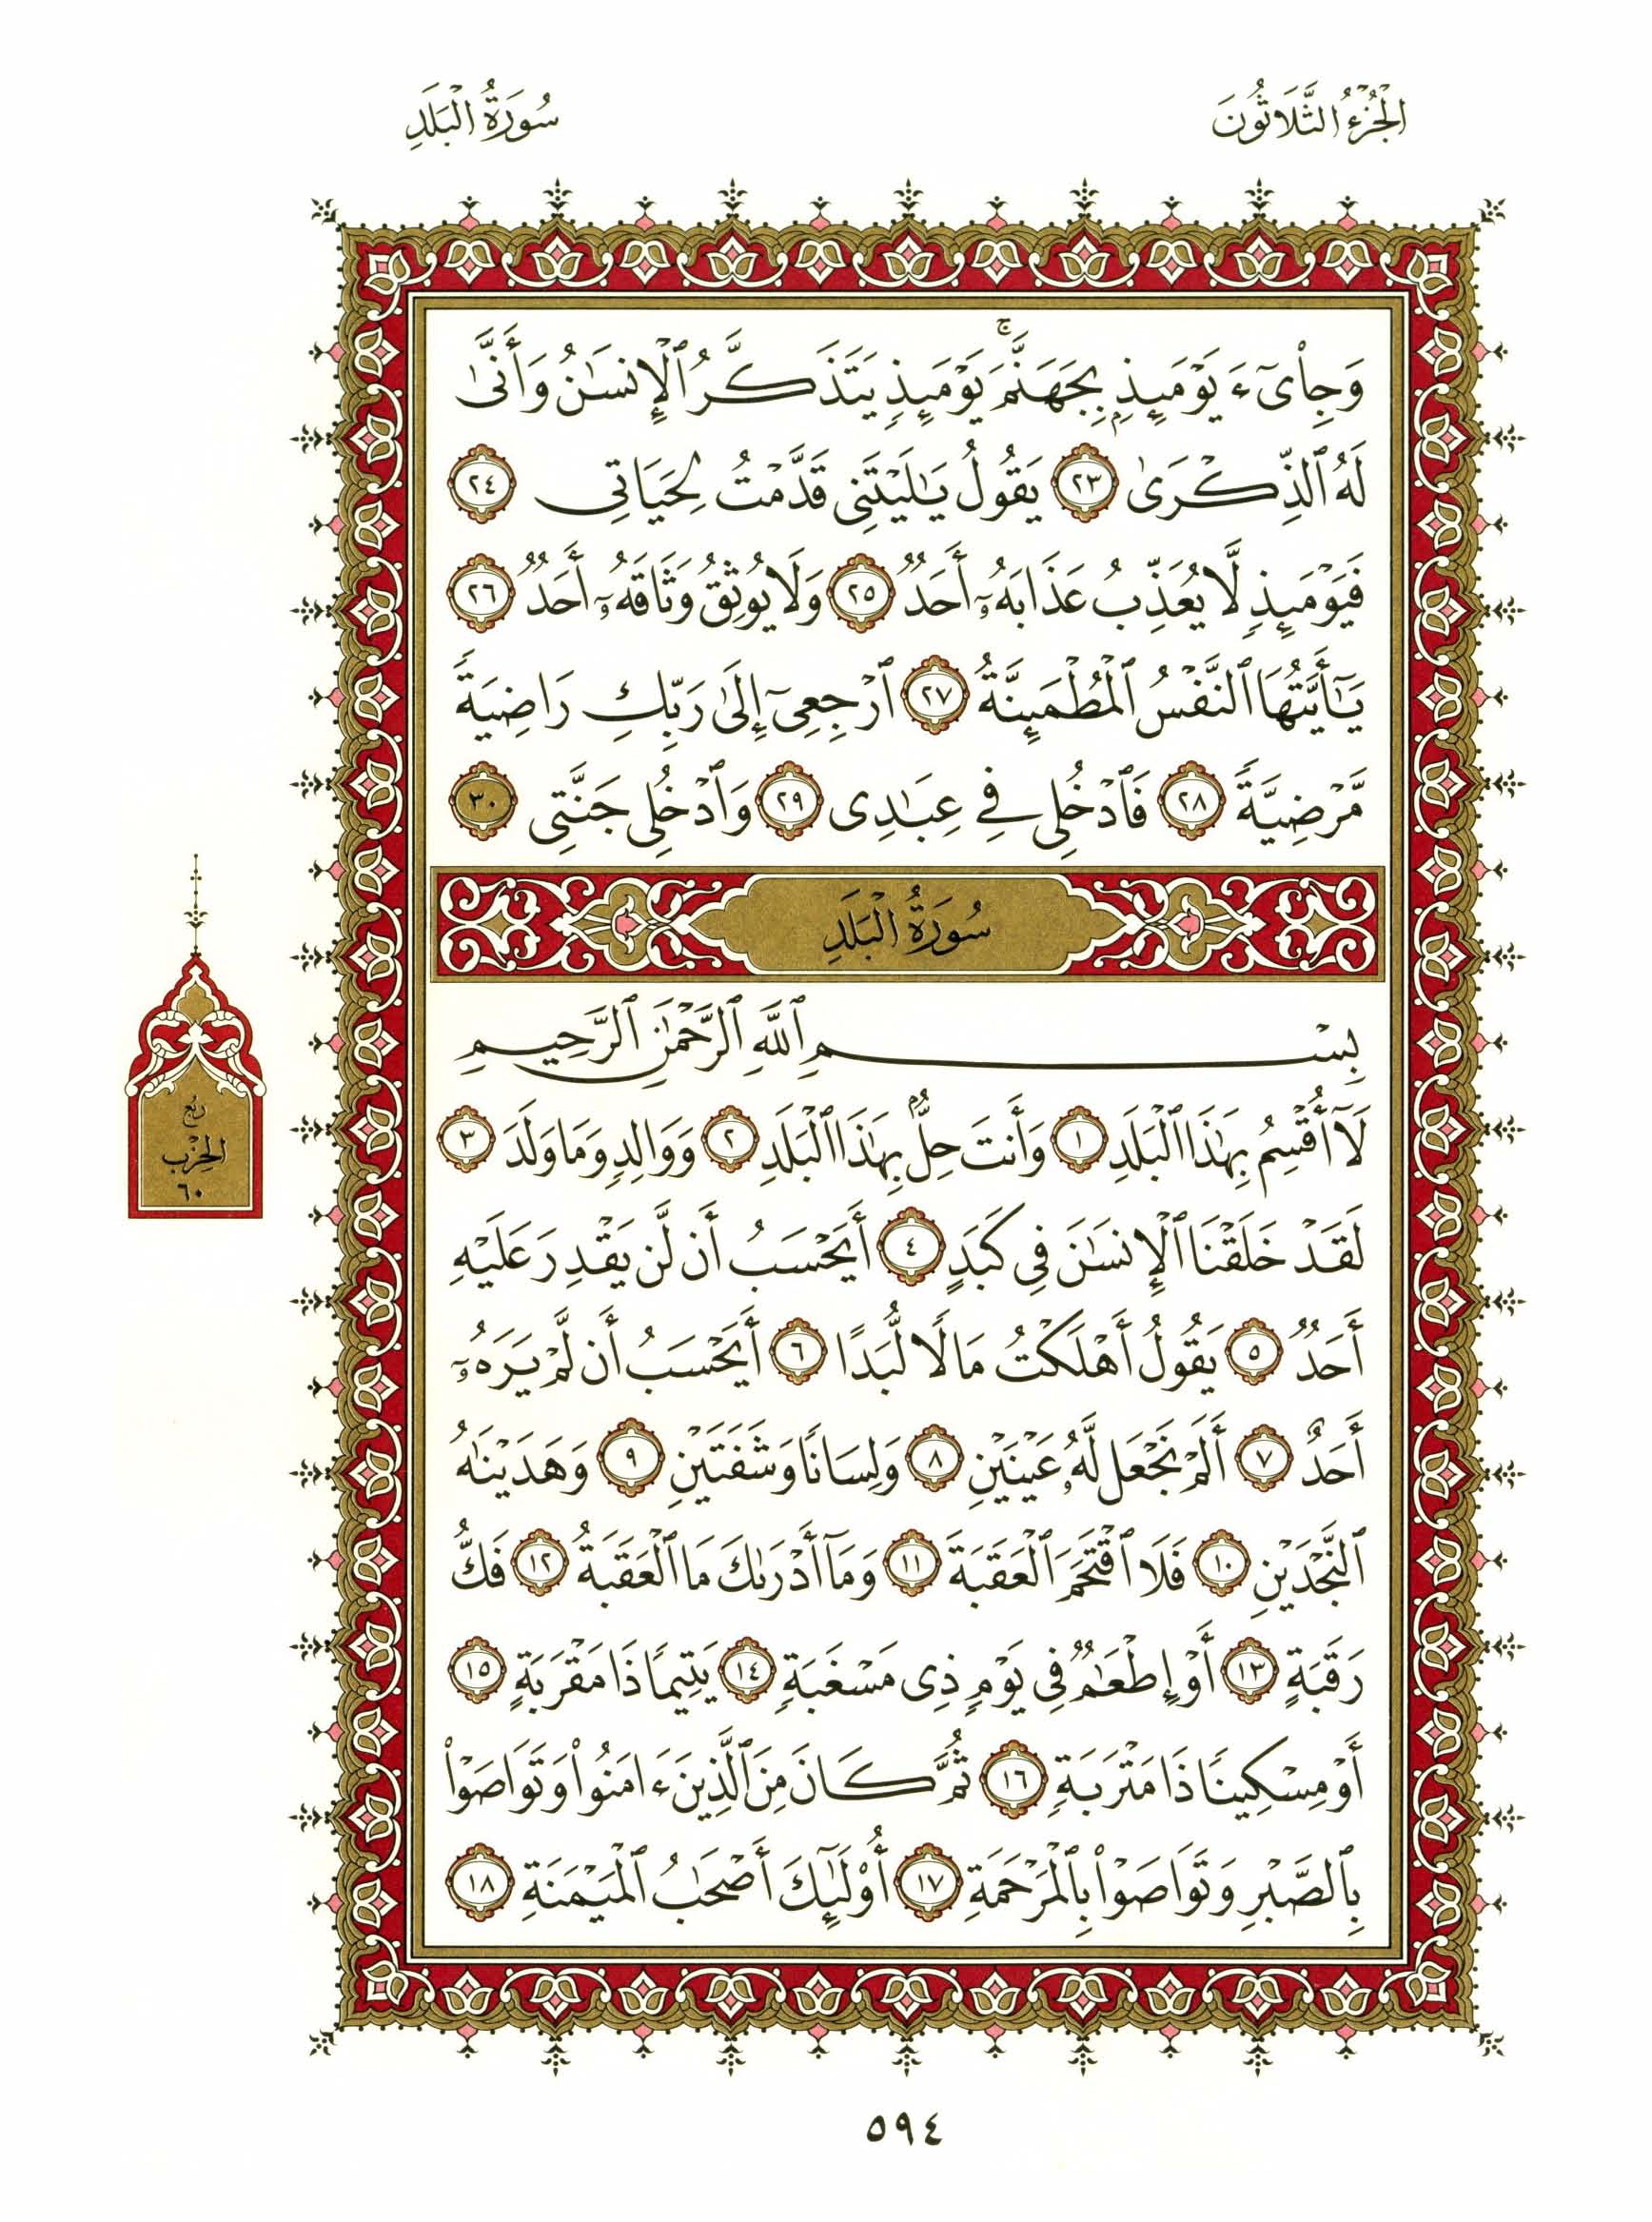 الجُزْءُ الثَّلَاثُونَ
سُورَةُ الْبَلَدِ
وَجِاْىٓءَ يَوْمَئِذِۭ بِجَهَنَّمَۚ يَوْمَئِذٍ يَتَذَكَّرُ ٱلْإِنسَٰنُ وَأَنَّىٰ
لَهُ ٱلذِّكْرَىٰ ٢٣ يَقُولُ يَٰلَيْتَنِى قَدَّمْتُ لِحَيَاتِى ٢٤
فَيَوْمَئِذٍ لَّا يُعَذِّبُ عَذَابَهُۥٓ أَحَدٌ ٢٥ وَلَا يُوثِقُ وَثَاقَهُۥٓ أَحَدٌ ٢٦
يَٰٓأَيَّتُهَا ٱلنَّفْسُ ٱلْمُطْمَئِنَّةُ ٢٧ ٱرْجِعِىٓ إِلَىٰ رَبِّكِ رَاضِيَةً
مَّرْضِيَّةً ٢٨ فَٱدْخُلِى فِى عِبَٰدِى ٢٩ وَٱدْخُلِى جَنَّتِى ٣٠
سُورَةُ الْبَلَدِ
بِسْمِ ٱللَّهِ ٱلرَّحْمَٰنِ ٱلرَّحِيمِ
لَآ أُقْسِمُ بِهَٰذَا ٱلْبَلَدِ ١ وَأَنتَ حِلٌّۢ بِهَٰذَا ٱلْبَلَدِ ٢ وَوَالِدٍ وَمَا وَلَدَ ٣
لَقَدْ خَلَقْنَا ٱلْإِنسَٰنَ فِى كَبَدٍ ٤ أَيَحْسَبُ أَن لَّن يَقْدِرَ عَلَيْهِ
أَحَدٌ ٥ يَقُولُ أَهْلَكْتُ مَالًا لُّبَدًا ٦ أَيَحْسَبُ أَن لَّمْ يَرَهُۥٓ
أَحَدٌ ٧ أَلَمْ نَجْعَل لَّهُۥ عَيْنَيْنِ ٨ وَلِسَانًا وَشَفَتَيْنِ ٩ وَهَدَيْنَٰهُ
ٱلنَّجْدَيْنِ ١٠ فَلَا ٱقْتَحَمَ ٱلْعَقَبَةَ ١١ وَمَآ أَدْرَىٰكَ مَا ٱلْعَقَبَةُ ١٢ فَكُّ
رَقَبَةٍ ١٣ أَوْ إِطْعَٰمٌ فِى يَوْمٍ ذِى مَسْغَبَةٍ ١٤ يَتِيمًا ذَا مَقْرَبَةٍ ١٥
أَوْ مِسْكِينًا ذَا مَتْرَبَةٍ ١٦ ثُمَّ كَانَ مِنَ ٱلَّذِينَ ءَامَنُوا۟ وَتَوَاصَوْا۟
بِٱلصَّبْرِ وَتَوَاصَوْا۟ بِٱلْمَرْحَمَةِ ١٧ أُو۟لَٰٓئِكَ أَصْحَٰبُ ٱلْمَيْمَنَةِ ١٨
رُبْع
الحِزْب
٦٠
٥٩٤